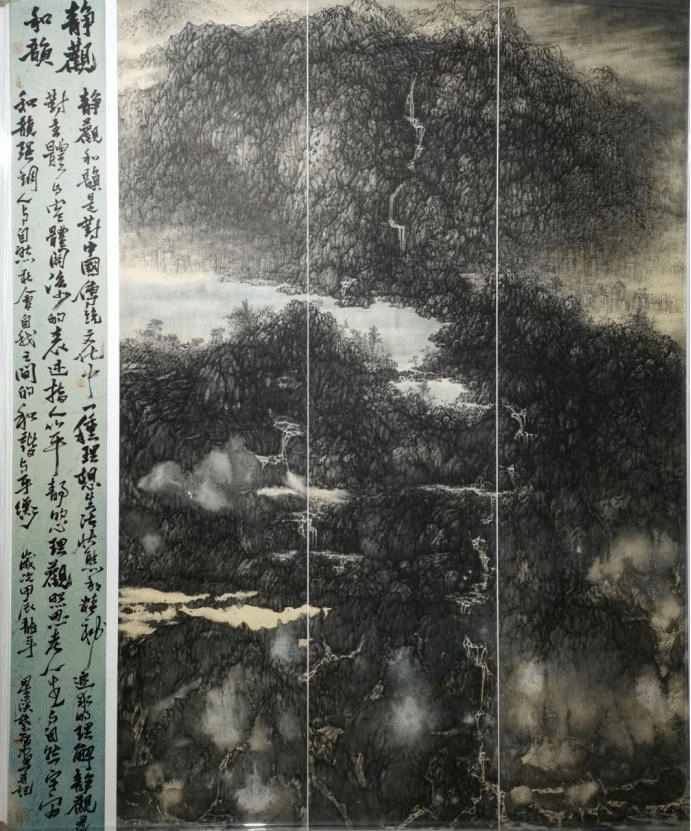 静觀
和韻
静觀和韻是對中國傳統文化中一種理想生活狀態和精神追求的理解静觀是
對主體與客體關係的表述指人以平静的心理觀照思考人生與自然宇宙
和韻强調人與自然社會自我之間的和諧與平衡 歲次甲辰龍年 墨溪